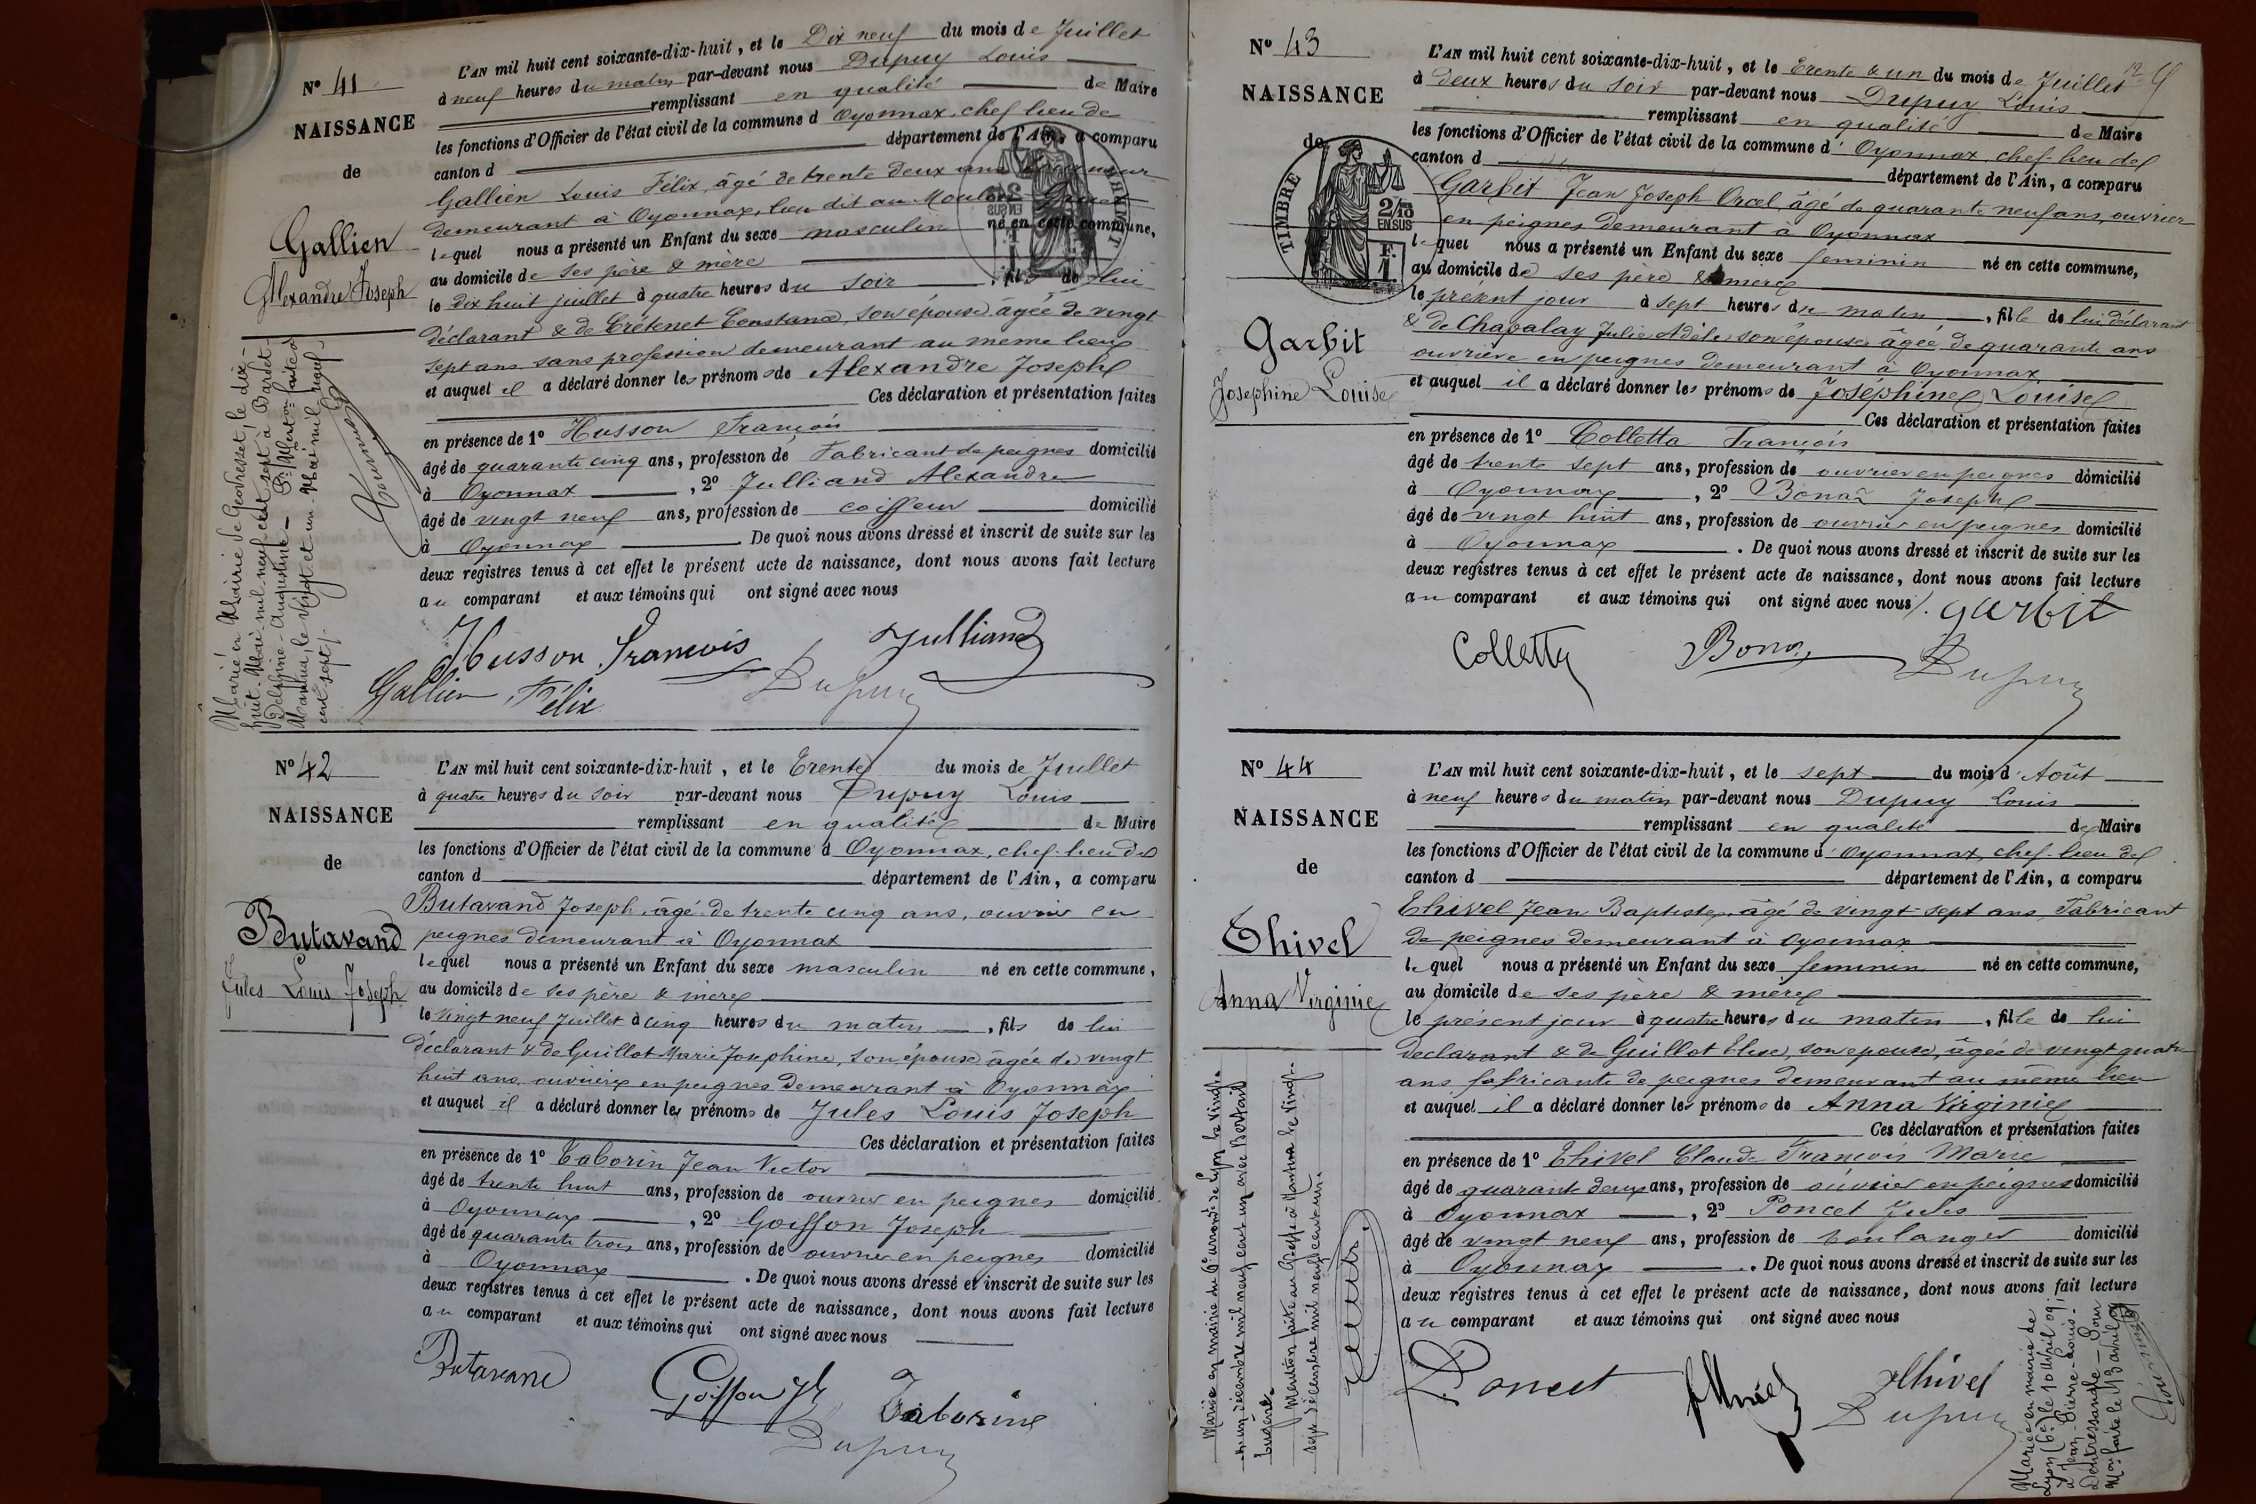 N° 41
NAISSANCE
de
Gallien
Alexandre Joseph
L'AN mil huit cent soixante-dix-huit, et le Dix neuf du mois de Juillet
à neuf heures du matin par-devant nous Dupuy Louis
remplissant en qualité de Maire
les fonctions d'Officier de l'état civil de la commune d Oyonnax, chef lieu de
canton d département de l'Ain, a comparu
Gallien Louis Félix, âgé de trente deux ans
demeurant à Oyonnax, lieu dit au Moulin
lequel nous a présenté un Enfant du sexe masculin né en cette commune,
au domicile de ses père & mère
le dix huit juillet à quatre heures du soir, fils de lui
déclarant & de Crétenet Constance, son épouse âgée de vingt
sept ans sans profession demeurant au même lieu
et auquel il a déclaré donner les prénoms de Alexandre Joseph
Ces déclaration et présentation faites
en présence de 1° Husson François
âgé de quarante cinq ans, profession de Fabricant de peignes domicilié
à Oyonnax, 2° Julliand Alexandre
âgé de vingt neuf ans, profession de coiffeur domicilié
à Oyonnax De quoi nous avons dressé et inscrit de suite sur les
deux registres tenus à cet effet le présent acte de naissance, dont nous avons fait lecture
au comparant et aux témoins qui ont signé avec nous
Husson François Julliand
Gallien Félix Dupuy
Marié en Mairie de Géovresset, le dix-
huit Mai mil neuf cent sept à Bardet
Delphine-Augustine - Pr Mention faite à
Nantua, le vingt et un Mai mil neuf
cent sept
N° 42
NAISSANCE
de
Butavand
Jules Louis Joseph
L'AN mil huit cent soixante-dix-huit, et le Trente du mois de Juillet
à quatre heures du soir par-devant nous Dupuy Louis
remplissant en qualité de Maire
les fonctions d'Officier de l'état civil de la commune d Oyonnax, chef-lieu de
canton d département de l'Ain, a comparu
Butavand Joseph, âgé de trente cinq ans, ouvrier en
peignes demeurant à Oyonnax
lequel nous a présenté un Enfant du sexe masculin né en cette commune,
au domicile de ses père & mère
le vingt neuf Juillet à cinq heures du matin, fils de lui
déclarant & de Guillot Marie Josephine, son épouse âgée de vingt
huit ans ouvrière en peignes demeurant à Oyonnax
et auquel il a déclaré donner les prénoms de Jules Louis Joseph
Ces déclaration et présentation faites
en présence de 1° Taborin Jean Victor
âgé de trente huit ans, profession de ouvrier en peignes domicilié
à Oyonnax, 2° Goiffon Joseph
âgé de quarante trois ans, profession de ouvrier en peignes domicilié
à Oyonnax. De quoi nous avons dressé et inscrit de suite sur les
deux registres tenus à cet effet le présent acte de naissance, dont nous avons fait lecture
au comparant et aux témoins qui ont signé avec nous
Butavand Goiffon Jh Taborin
Dupuy
N° 43
NAISSANCE
de
TIMBRE
2/10 EN SUS
F. 1
Garbit
Josephine Louise
L'AN mil huit cent soixante-dix-huit, et le Trente & un du mois de Juillet
à deux heures du soir par-devant nous Dupuy Louis
remplissant en qualité de Maire
les fonctions d'Officier de l'état civil de la commune d'Oyonnax, chef-lieu de
canton d département de l'Ain, a comparu
Garbit Jean Joseph Orcel, âgé de quarante neuf ans, ouvrier
en peignes demeurant à Oyonnax
lequel nous a présenté un Enfant du sexe feminin né en cette commune,
au domicile de ses père & mère
le présent jour à sept heures du matin, fille de lui déclarant
& de Chavalay Julie Adèle, son épouse âgée de quarante ans
ouvrière en peignes demeurant à Oyonnax
et auquel il a déclaré donner les prénoms de Joséphine Louise
Ces déclaration et présentation faites
en présence de 1° Colletta François
âgé de trente sept ans, profession de ouvrier en peignes domicilié
à Oyonnax, 2° Bonaz Joseph
âgé de vingt huit ans, profession de ouvrier en peignes domicilié
à Oyonnax. De quoi nous avons dressé et inscrit de suite sur les
deux registres tenus à cet effet le présent acte de naissance, dont nous avons fait lecture
au comparant et aux témoins qui ont signé avec nous. garbit
Colletta Bonaz Dupuy
N° 44
NAISSANCE
de
Thivel
Anna Virginie
L'AN mil huit cent soixante-dix-huit, et le sept du mois d'Août
à neuf heures du matin par-devant nous Dupuy Louis
remplissant en qualité de Maire
les fonctions d'Officier de l'état civil de la commune d'Oyonnax, chef-lieu de
canton d département de l'Ain, a comparu
Thivel Jean Baptiste, âgé de vingt-sept ans, Fabricant
de peignes demeurant à Oyonnax
lequel nous a présenté un Enfant du sexe feminin né en cette commune,
au domicile de ses père & mère
le présent jour à quatre heures du matin, fille de lui
declarant & de Guillot Elise, son epouse, âgée de vingt quatre
ans fabricante de peignes demeurant au même lieu
et auquel il a déclaré donner les prénoms de Anna Virginie
Ces déclaration et présentation faites
en présence de 1° Thivel Claude François Marie
âgé de quarante deux ans, profession de ouvrier en peignes domicilié
à Oyonnax, 2° Poncet Jules
âgé de vingt neuf ans, profession de boulanger domicilié
à Oyonnax. De quoi nous avons dressé et inscrit de suite sur les
deux registres tenus à cet effet le présent acte de naissance, dont nous avons fait lecture
au comparant et aux témoins qui ont signé avec nous
Poncet Thivel Thivel
Dupuy
Mariée en mairie du 6e arrondt de Lyon le vingt
et un décembre mil neuf cent un avec Bertail
Eugène.
Mention faite au Greffe à Nantua le vingt
sept décembre mil neuf cent un.
Mariée en mairie de
Lyon (6e) le 10 Avril 09,
à Jean-Pierre-Louis
Dentressangle - Pour
Mon faite le 13 Avril 09